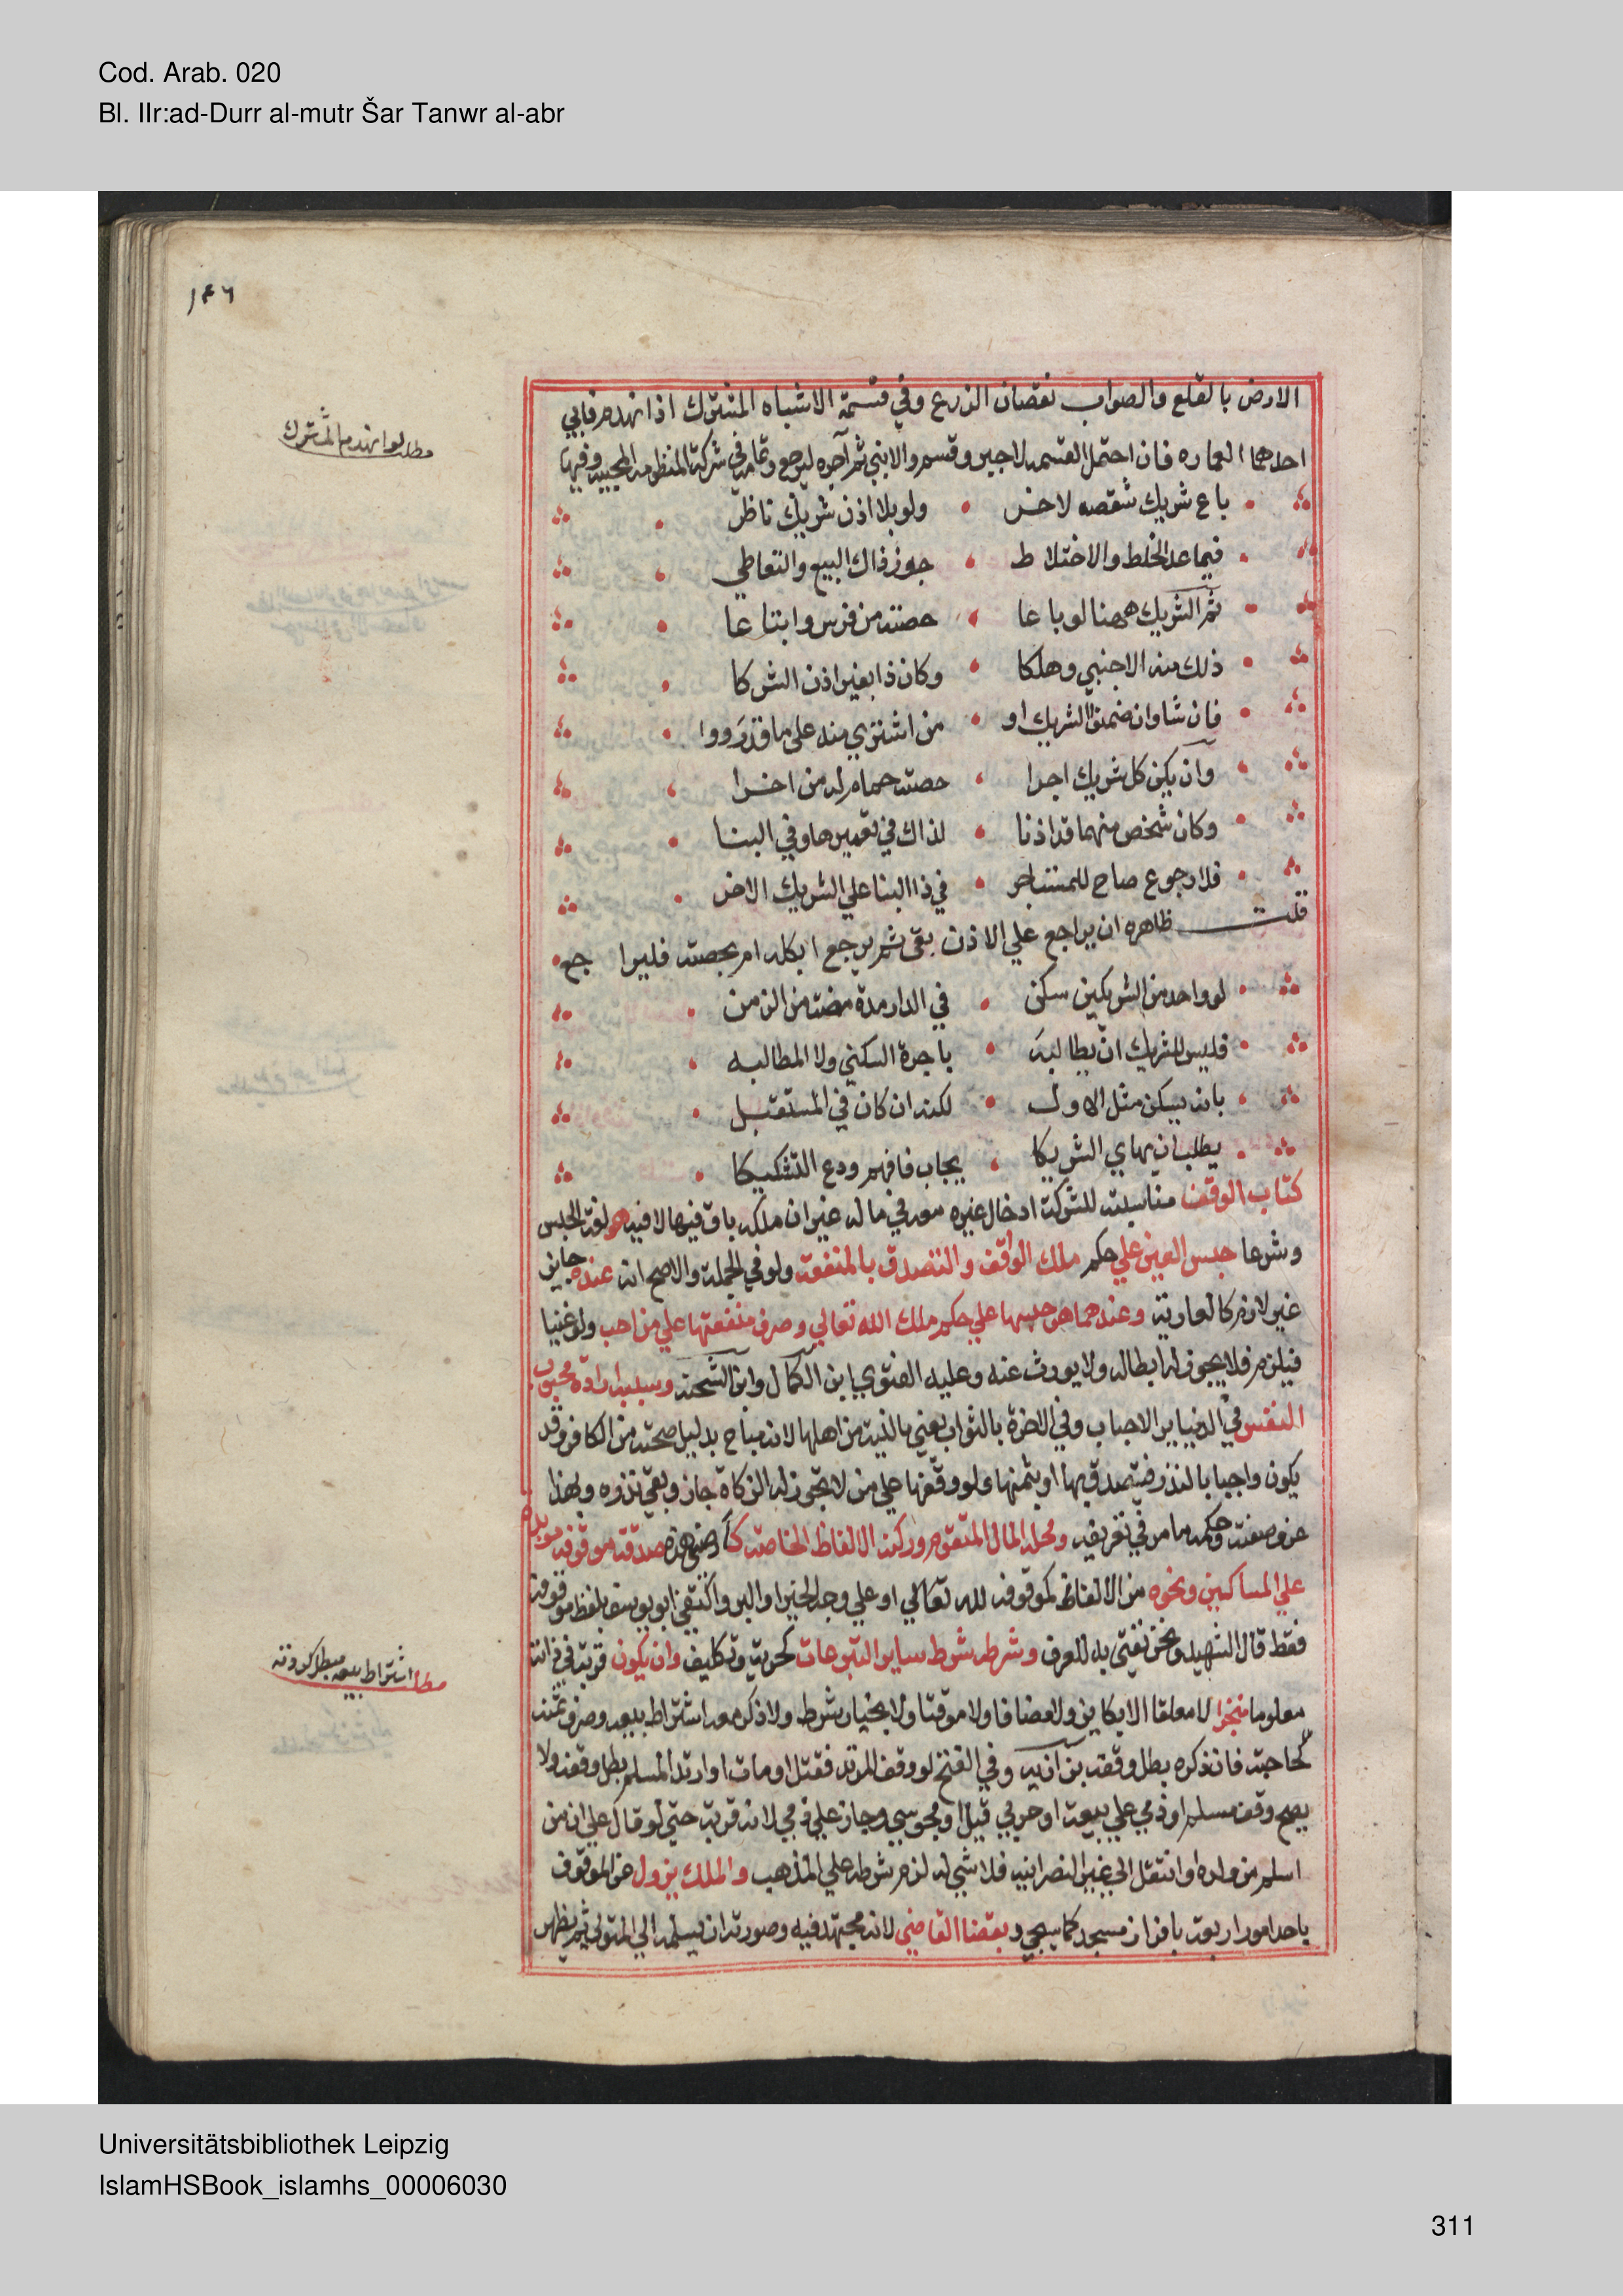 Cod. Arab. 020
Bl. IIr:ad-Durr al-mutr Šar Tanwr al-abr
١٤٦
الارض بالقلع والصواب نقصان الزرع وفي قسمة الاشباه المشترك اذا انهدم فابي
مطلب لو انهدم المشترك
احدهما العماره فان احتمل القسمه لاجبر وقسم والا بني ثم آجره ليرجع وتمامه في شركة المنظومه المحبيه وفيها
باع شريك شقصه لاخر ولو بلا اذن شريك ناظر
فيما عدا الخلط والاختلاط جوز ذاك البيع والتعاطي
ثم الشريك ههنا لو باعا حصته من فرس وابتاعا
ذلك منه الاجنبي وهلكا وكان ذا بغير اذن الشركا
فان شاوا ضمنوا الشريك او من اشتري منه علي ما قد رووا
وان يكن كل شريك اجرا حصته حمام له من اخرا
وكان شخص منهما قد اذنا لذاك في تعميرها وفي البنا
فلا رجوع صاح للمستاجر في ذا البنا علي الشريك الاخر
قلت ظاهره ان يراجع علي الاذن بقي ثم يرجع ابكله ام بحصته فليراجع
لو واحد من الشريكين سكن في الدار مدة مضت من الزمن
فليس للشريك ان يطالبه باجرة السكني ولا المطالبه
بانه يسكن مثل الاول لكنه ان كان في المستقبل
يطلب ان يهاي الشريكا يجاب فافهم ودع التشكيكا
كتاب الوقف مناسبته للشركة ادخال غيره معه في ماله غير ان ملكه باق فيها لا فيه هو لغة الحبس
وشرعا حبس العين علي حكم ملك الواقف والتصدق بالمنفعة ولو في الجملة والاصح انه عنده جايز
غير لازم كالعارية وعندهما هو حبسها علي حكم ملك الله تعالي وصرف منفعتها علي من احب ولو غنيا
فيلزم فلا يجوز له ابطاله ولا يورث عنه وعليه الفتوي ابن الكمال وابن الشحنه وسببه ارادة محبوب
النفس في الدنيا ببر الاحباب وفي الاخرة بالثواب يعني بالنية من اهلها لانه مباح بدليل صحته من الكافر وقد
يكون واجبا بالنذر فيتصدق بها او بثمنها ولو وقفها علي من لا تجوز له الزكاة جاز وبقي نذره وبهذا
عرف صفته وحكمه ما مر في تعريفه ومحله المال المتقوم وركنه الالفاظ الخاصه كارضي هذه صدقة موقوفه موبده
علي المساكين ونحوه من الالفاظ كموقوفه لله تعالي او علي وجه الخير او البر واكتفي ابو يوسف بلفظ موقوفة
فقط قال الشهيد ونحن نفتي به للعرف وشرطه شرط ساير التبرعات كحرية وتكليف وان يكون قربة في ذاته
مطلب اشتراط بيعه مبطل لو ذكر
معلوما منجزا لا معلقا الا بكاين ولا مضافا ولا موقتا ولا بخيار شرط ولا ذكر معه اشتراط بيعه وصرف ثمنه
لحاجته فان ذكره بطل وقفه بزازيه وفي الفتح لو وقف المرتد فقتل او مات او ارتد المسلم بطل وقفه ولا
يصح وقف مسلم او ذمي علي بيعة او حربي قيل او مجوسي وجاز علي ذمي لانه قربة حتي لو قال علي ان من
اسلم من ولده او انتقل الي غير النصرانيه فلا شي له لزم شرطه علي المذهب والملك يزول عن الموقوف
باحد امور اربعة بافراز مسجد كما سيجي وبقضا القاضي لانه مجتهد فيه وصورته ان يسلمه الي المتولي ثم يظهر
Universitätsbibliothek Leipzig
IslamHSBook_islamhs_00006030
311